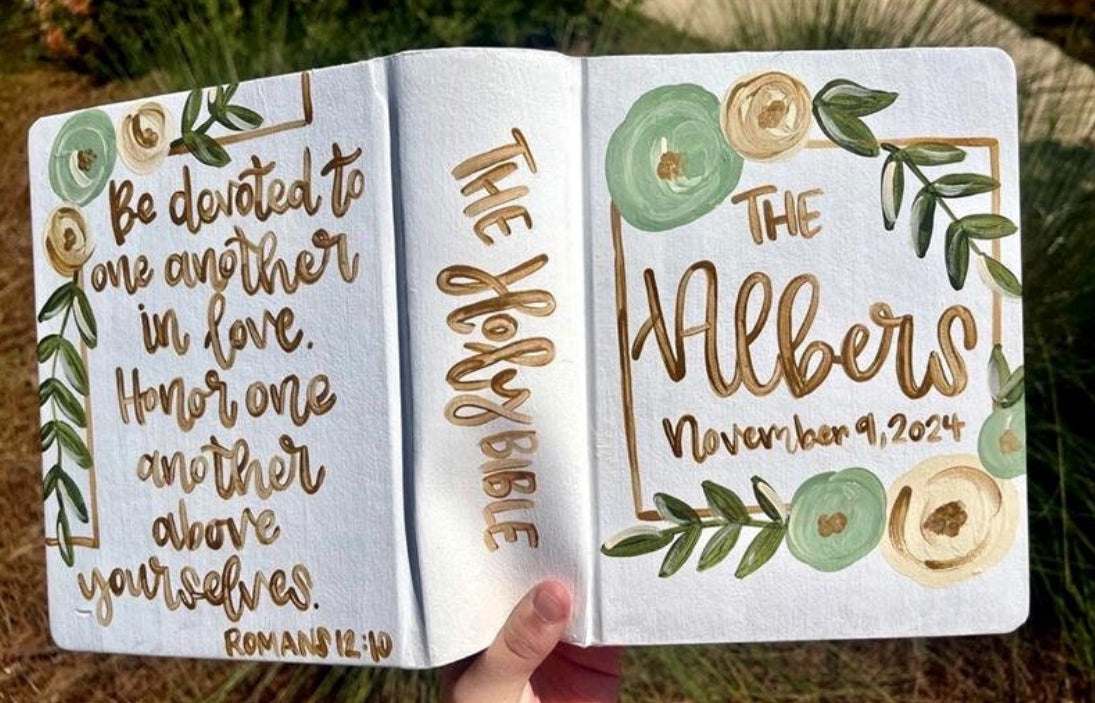 Be devoted to
one another
in love.
Honor one
another
above
yourselves.
ROMANS 12:10
THE Holy BIBLE
THE
Albers
November 9, 2024